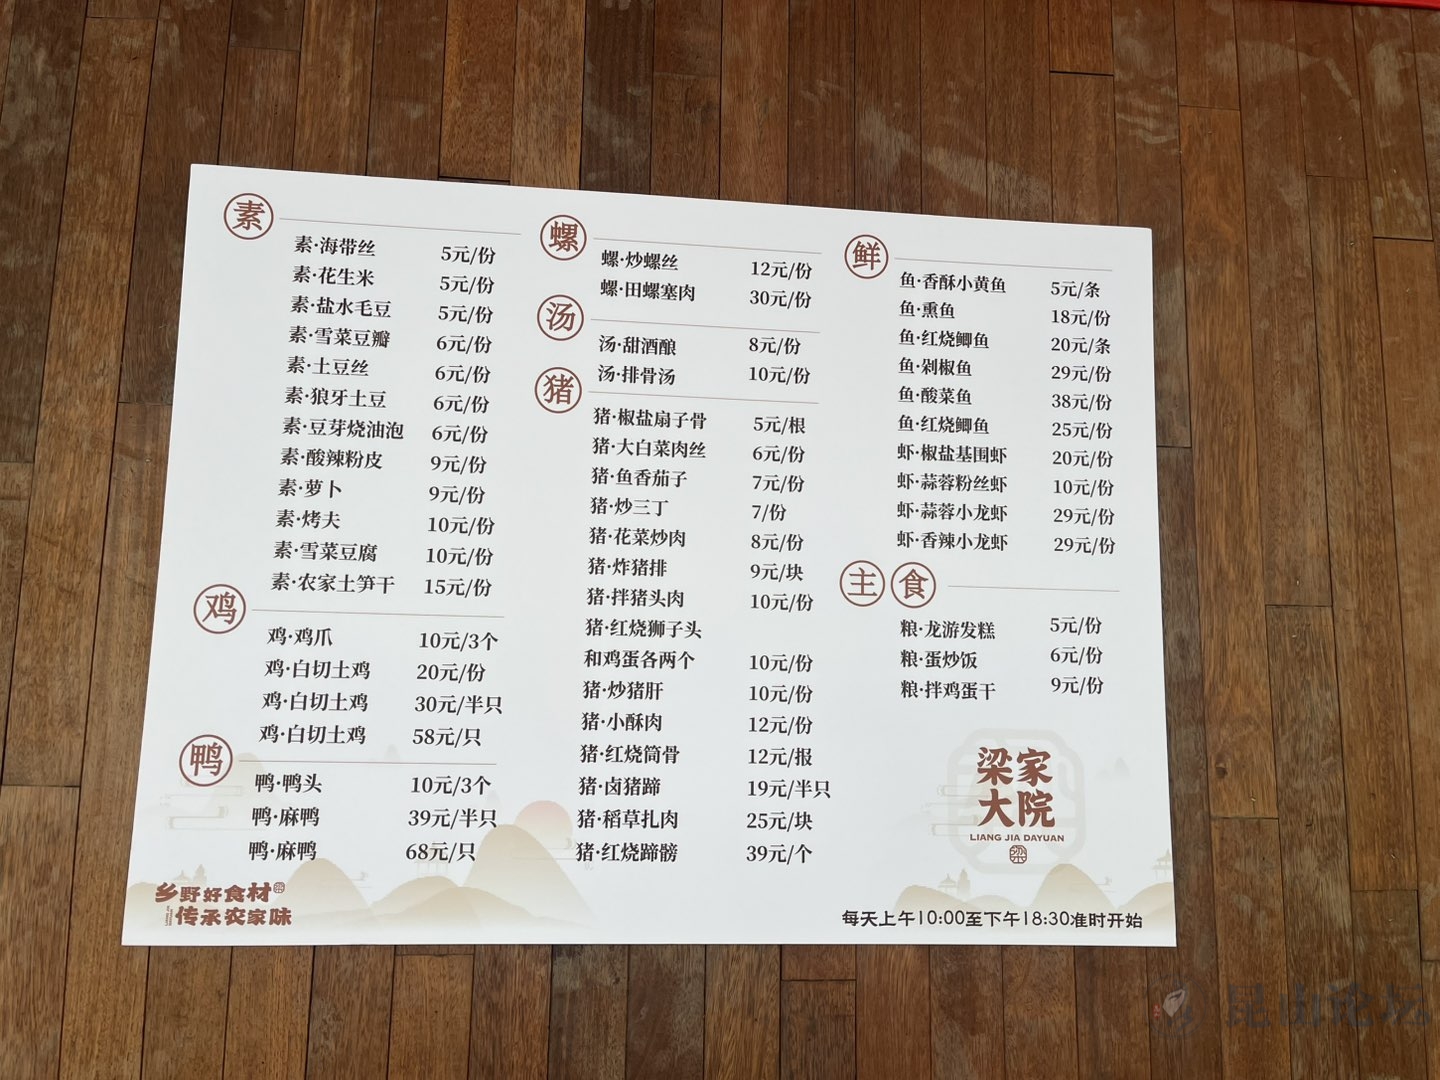 素
素·海带丝 5元/份
素·花生米 5元/份
素·盐水毛豆 5元/份
素·雪菜豆瓣 6元/份
素·土豆丝 6元/份
素·狼牙土豆 6元/份
素·豆芽烧油泡 6元/份
素·酸辣粉皮 9元/份
素·萝卜 9元/份
素·烤夫 10元/份
素·雪菜豆腐 10元/份
素·农家土笋干 15元/份
鸡
鸡·鸡爪 10元/3个
鸡·白切土鸡 20元/份
鸡·白切土鸡 30元/半只
鸡·白切土鸡 58元/只
鸭
鸭·鸭头 10元/3个
鸭·麻鸭 39元/半只
鸭·麻鸭 68元/只
乡野好食材
传承农家味
螺
螺·炒螺丝 12元/份
螺·田螺塞肉 30元/份
汤
汤·甜酒酿 8元/份
汤·排骨汤 10元/份
猪
猪·椒盐扇子骨 5元/根
猪·大白菜肉丝 6元/份
猪·鱼香茄子 7元/份
猪·炒三丁 7/份
猪·花菜炒肉 8元/份
猪·炸猪排 9元/块
猪·拌猪头肉 10元/份
猪·红烧狮子头
和鸡蛋各两个 10元/份
猪·炒猪肝 10元/份
猪·小酥肉 12元/份
猪·红烧筒骨 12元/报
猪·卤猪蹄 19元/半只
猪·稻草扎肉 25元/块
猪·红烧蹄髈 39元/个
鲜
鱼·香酥小黄鱼 5元/条
鱼·熏鱼 18元/份
鱼·红烧鲫鱼 20元/条
鱼·剁椒鱼 29元/份
鱼·酸菜鱼 38元/份
鱼·红烧鲫鱼 25元/份
虾·椒盐基围虾 20元/份
虾·蒜蓉粉丝虾 10元/份
虾·蒜蓉小龙虾 29元/份
虾·香辣小龙虾 29元/份
主食
粮·龙游发糕 5元/份
粮·蛋炒饭 6元/份
粮·拌鸡蛋干 9元/份
梁家
大院
LIANG JIA DAYUAN
梁
每天上午10:00至下午18:30准时开始
昆山论坛